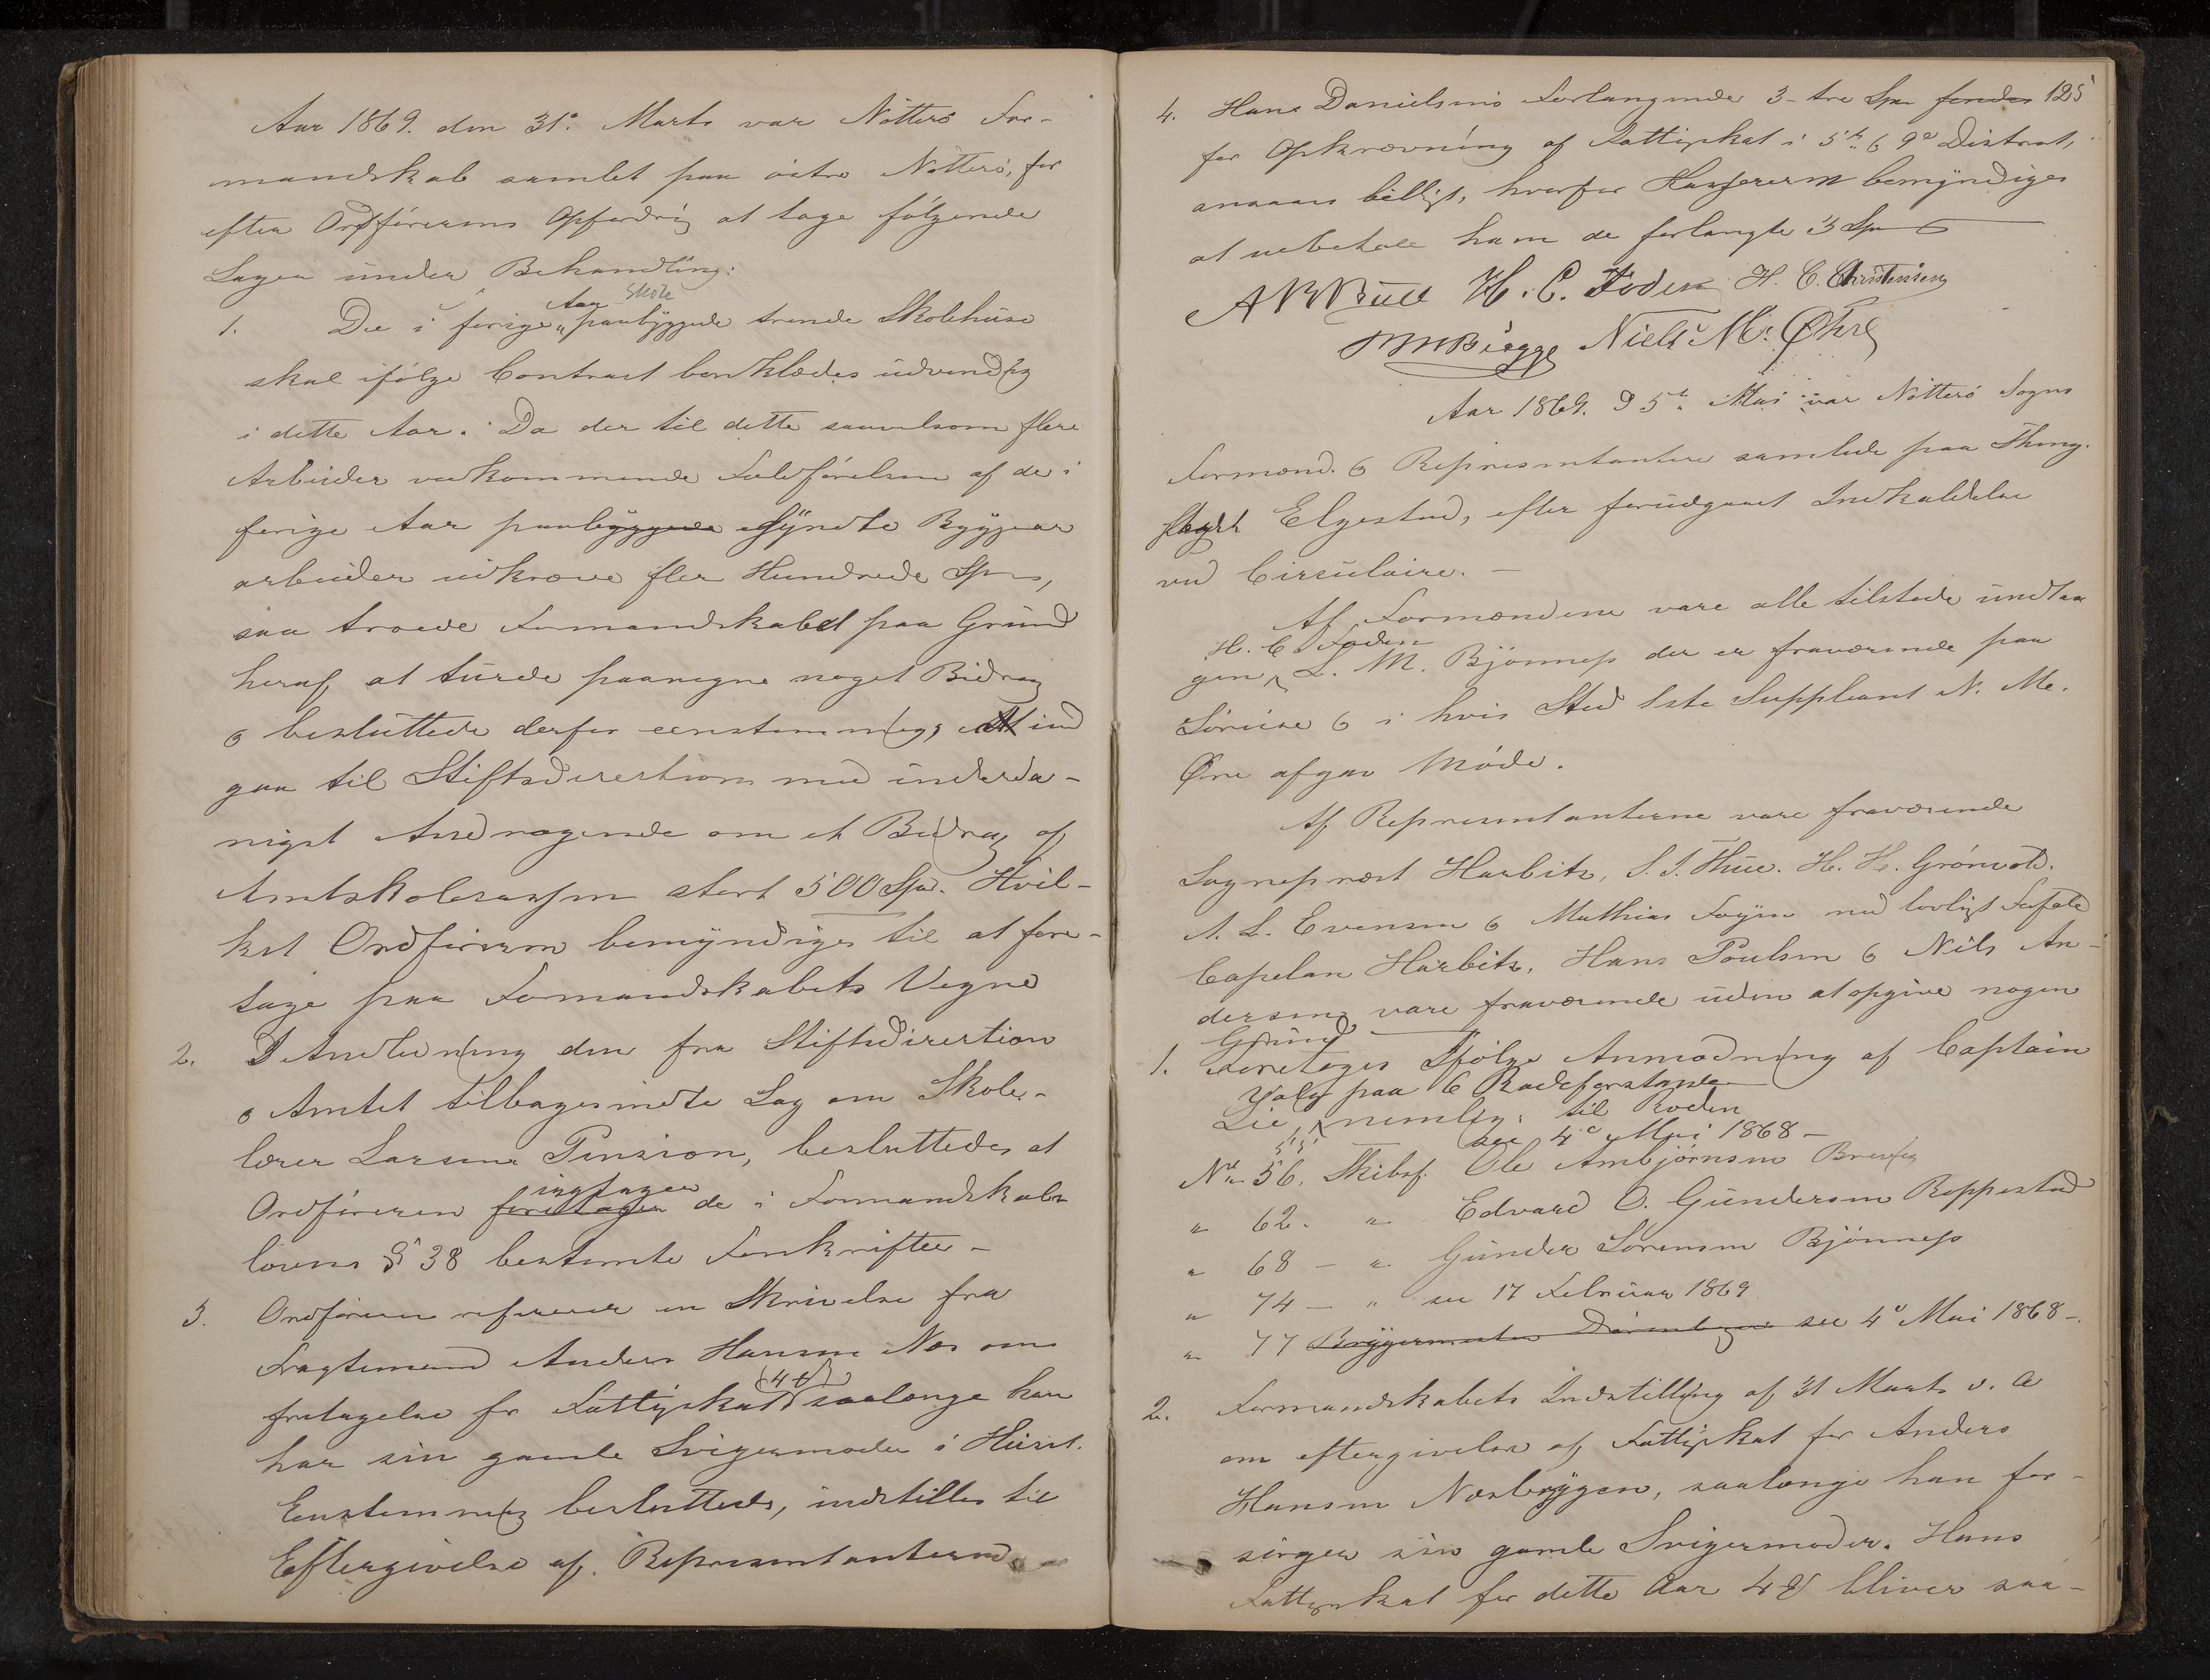 Aar 1869. den 31te Marts var Nötterö For-
mandskab samlet paa östre Nötterö, for
efter Ordförerens Opfordring at tage fölgende
Sager under Behandling:
Aar Skole
1. De i forige paabyggede trende Skolehuse
skal ifölge Contract bordklædes udvendig
i dette Aar. Da der til dette saavelsom flere
Arbeider vedkommende Fuldförelsen af de i
forige Aar paabyggede begyndte Bygge
arbeider udkræve flere Hundrede Spd,
saa troede Formandskabet paa Grund
heraf, at turde paaregne noget Bidrag
o besluttede derfor eenstemmig, at ind
gaa til Stiftsdirectionen med underda-
nigst Andragende om et Bidrag af
Amtskolecassen stort 500 Spd. Hvil-
ket Ordföreren bemyndiges til at fore-
tage paa Formandskabets Vegne
2. I Anledning den fra Stiftsdirection
o Amtet tilbagesendte Sag om Skole-
lærer Larsens Pension, besluttedes at
iagtager
Ordföreren foretager de i Formandskabs
lovens § 38 bestemte Forskrifter -
3. Ordföreren refererer en Skrivelse fra
Fragtemand Anders Hansen Næs om
(4 ort)
fritagelse for Fattigskat saalænge han
har sin gamle Svigermoder i Huset.
Eenstemmig besluttedes, indstilles til
Eftergivelse af Representanterne
125
4. Hans Danielsens Forlangende 3- tre Spd
for Opkrævning af Fattigskat i 5te o 9de District,
ansaaes billigt, hvorfor Kassereren bemyndiges
at udbetale ham de forlangte 3 Spd
A B Bull H. C. Foden H. C. Christensen
Niels M. Øhre
Aar 1869. D 5te Mai var Nötterö Sogns
Formænd. o Representantere samlede paa Thing-
stedet Elgestad, efter forudgaaet Indkaldelse
ved Circulaire. -
Af Formændene vare alle tilstede undta
H. C. Foden
gen L. M. Bjönness der er fraværende paa
Söreise o i hvis Sted 1ste Suppleant N. M.
Öre afgav Möde.
Af Representanterne vare fraværende
Sognepræst Harbitz, S. T. Hue. H. H. Grönvold.
A. L. Evensen o Mathias Foyn med lovligt Forfald
Capelan Harbitz, Hans Poulsen o Nils An-
dersen vare fraværende uden at opgive nogen
Grund
1. Foretoges ifölge Anmodning af Captain
Valg paa 6 Rodeforstandere
Lie, nemlig: til Roden
55 see 4de Mai 1868 -
No 56. Skibsf. Ole Ambjörnsen Brevig
" 62. " Edvard O. Gundersen Buppestad
" 68 - " Gunder Sörensen Bjönness
" 74 - " see 17 Februar 1869
" 77 Byggermester see 4de Mai 1868 -
2. Formandskabets Indstilling af 31 Marts d. A
om eftergivelse af Fattigskat for Anders
Hansen Næsbryggen, saalænge han for-
sörger sin gamle Svigermoder. Hans
Fattigskat for dette Aar 4 ort bliver saa-